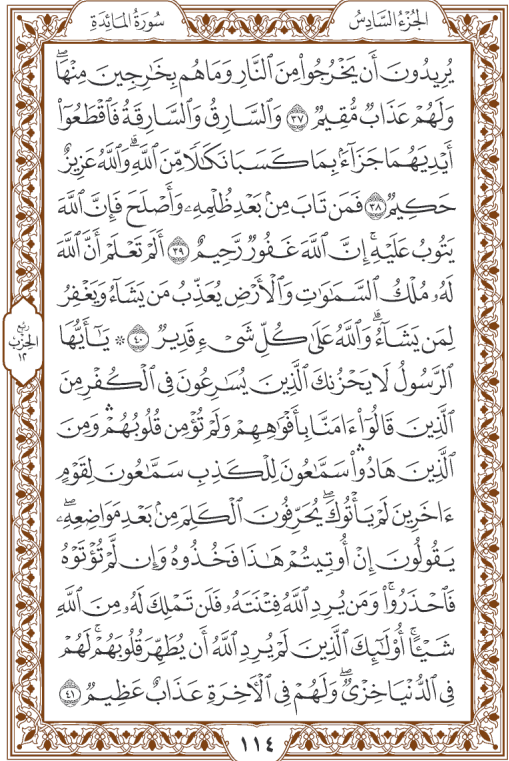 الجُزْءُ السَّادِسُ
سُورَةُ المَائِدَةِ
يُرِيدُونَ أَن يَخْرُجُواْ مِنَ ٱلنَّارِ وَمَا هُم بِخَٰرِجِينَ مِنْهَاۖ
وَلَهُمْ عَذَابٌ مُّقِيمٌ ٣٧ وَٱلسَّارِقُ وَٱلسَّارِقَةُ فَٱقْطَعُوٓاْ
أَيْدِيَهُمَا جَزَآءَۢ بِمَا كَسَبَا نَكَٰلٗا مِّنَ ٱللَّهِۗ وَٱللَّهُ عَزِيزٌ
حَكِيمٌ ٣٨ فَمَن تَابَ مِنۢ بَعْدِ ظُلْمِهِۦ وَأَصْلَحَ فَإِنَّ ٱللَّهَ
يَتُوبُ عَلَيْهِۚ إِنَّ ٱللَّهَ غَفُورٌ رَّحِيمٌ ٣٩ أَلَمْ تَعْلَمْ أَنَّ ٱللَّهَ
لَهُۥ مُلْكُ ٱلسَّمَٰوَٰتِ وَٱلْأَرْضِ يُعَذِّبُ مَن يَشَآءُ وَيَغْفِرُ
لِمَن يَشَآءُۗ وَٱللَّهُ عَلَىٰ كُلِّ شَيْءٍ قَدِيرٌ ٤٠ ۞ يَٰٓأَيُّهَا
ٱلرَّسُولُ لَا يَحْزُنكَ ٱلَّذِينَ يُسَٰرِعُونَ فِي ٱلْكُفْرِ مِنَ
ٱلَّذِينَ قَالُوٓاْ ءَامَنَّا بِأَفْوَٰهِهِمْ وَلَمْ تُؤْمِن قُلُوبُهُمْۛ وَمِنَ
ٱلَّذِينَ هَادُواْۛ سَمَّٰعُونَ لِلْكَذِبِ سَمَّٰعُونَ لِقَوْمٍ
ءَاخَرِينَ لَمْ يَأْتُوكَۖ يُحَرِّفُونَ ٱلْكَلِمَ مِنۢ بَعْدِ مَوَاضِعِهِۦۖ
يَقُولُونَ إِنْ أُوتِيتُمْ هَٰذَا فَخُذُوهُ وَإِن لَّمْ تُؤْتَوْهُ
فَٱحْذَرُواْۚ وَمَن يُرِدِ ٱللَّهُ فِتْنَتَهُۥ فَلَن تَمْلِكَ لَهُۥ مِنَ ٱللَّهِ
شَيْـًٔاۚ أُوْلَٰٓئِكَ ٱلَّذِينَ لَمْ يُرِدِ ٱللَّهُ أَن يُطَهِّرَ قُلُوبَهُمْۚ لَهُمْ
فِي ٱلدُّنْيَا خِزْيٌۖ وَلَهُمْ فِي ٱلْأٓخِرَةِ عَذَابٌ عَظِيمٌ ٤١
ربع
الحزب
١٢
١١٤